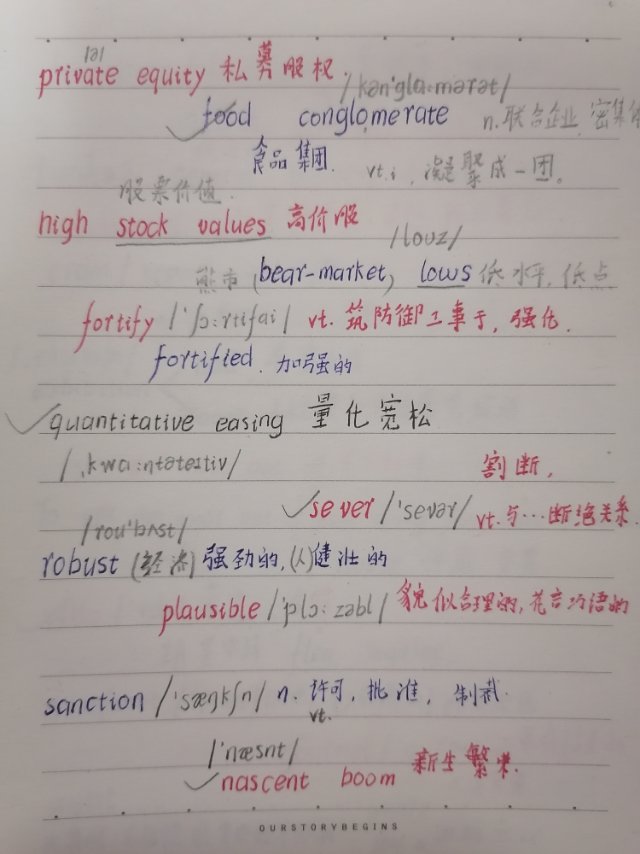 /ə/
private equity 私募股权
/kən'ɡlɑ:mərət/
food conglomerate n.联合企业,密集体
食品集团. vt.i , 凝聚成一团。
股票价值.
high stock values 高价股
/louz/
熊市(bear-market) lows 低水平,低点
fortify /'fɔ:rtifai/ vt. 筑防御工事于, 强化.
fortified. 加强的
quantitative easing 量化宽松
/ˌkwɑ:ntəteɪtiv/ 割断,
sever /'sevər/ vt.与…断绝关系.
/rou'bʌst/
robust (经济)强劲的,(人)健壮的
plausible /'plɔ:zəbl/ 貌似合理的,花言巧语的
sanction /'sæŋkʃn/ n. 许可, 批准, 制裁.
vt.
/'næsnt/
nascent boom 新生繁荣.
OURSTORYBEGINS